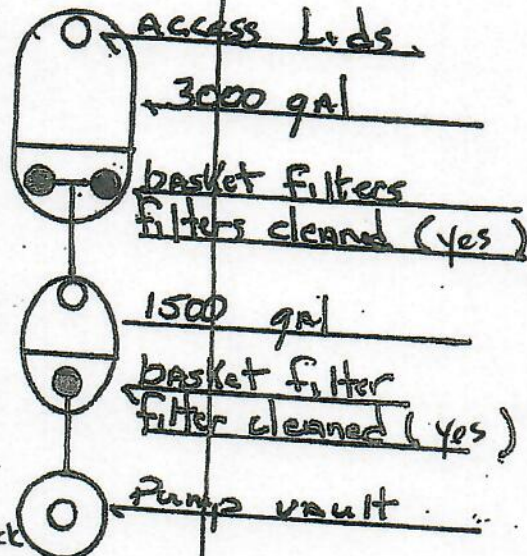 Access Lids
3000 gal
basket filters
filters cleaned (yes)
1500 gal
basket filter
filter cleaned (yes)
Pump vault